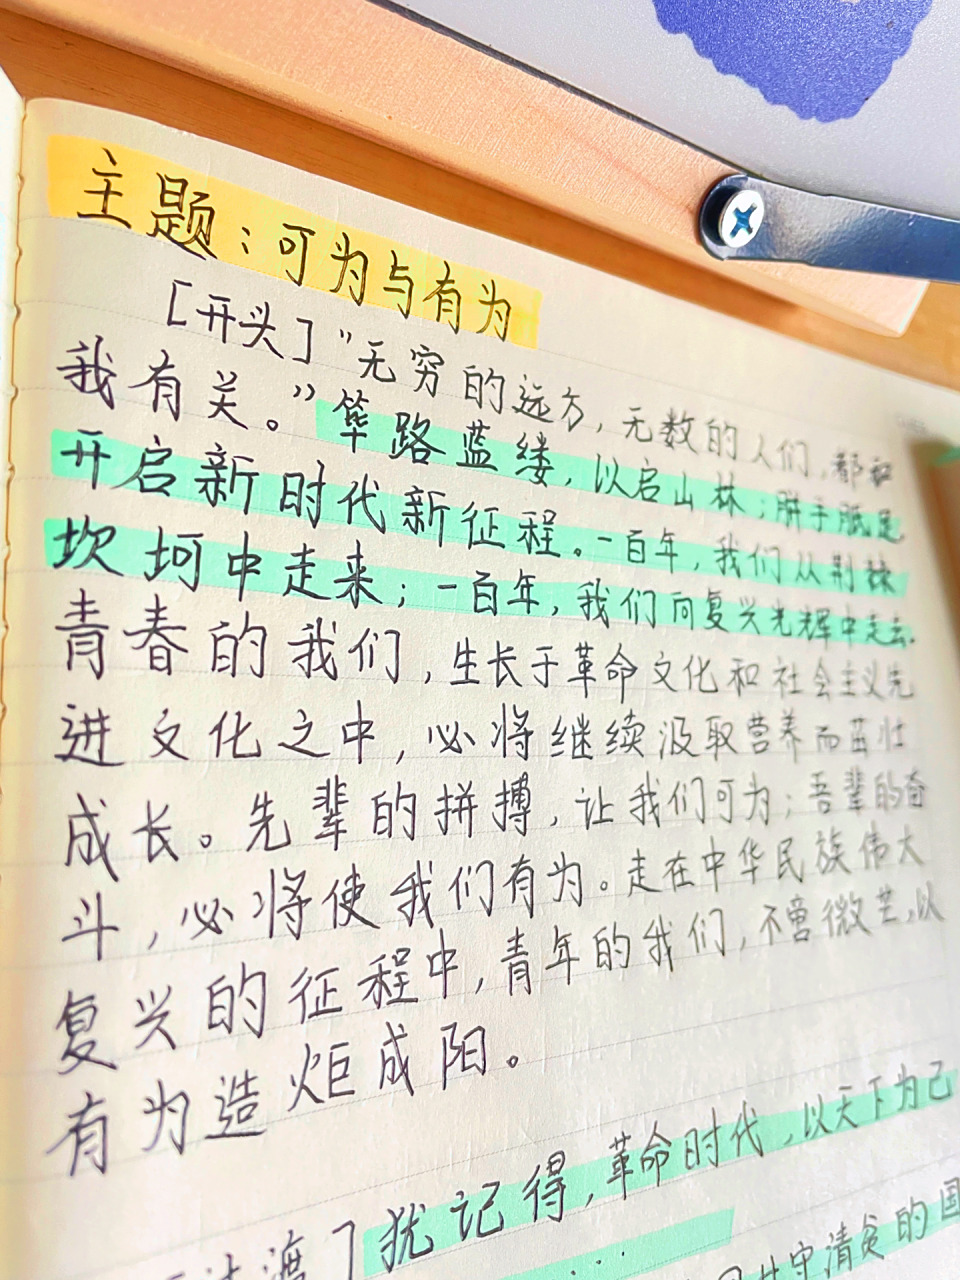 主题：可为与有为
［开头］“无穷的远方，无数的人们，都和
我有关。”筚路蓝缕，以启山林；胼手胝足
开启新时代新征程。一百年，我们从荆棘
坎坷中走来；一百年，我们向复兴光辉中走去。
青春的我们，生长于革命文化和社会主义先
进文化之中，必将继续汲取营养而茁壮
成长。先辈的拼搏，让我们可为；吾辈的奋
斗，必将使我们有为。走在中华民族伟大
复兴的征程中，青年的我们，不啻微芒，以
有为造炬成阳。
过渡］犹记得，革命时代，以天下为己
守清贫的国